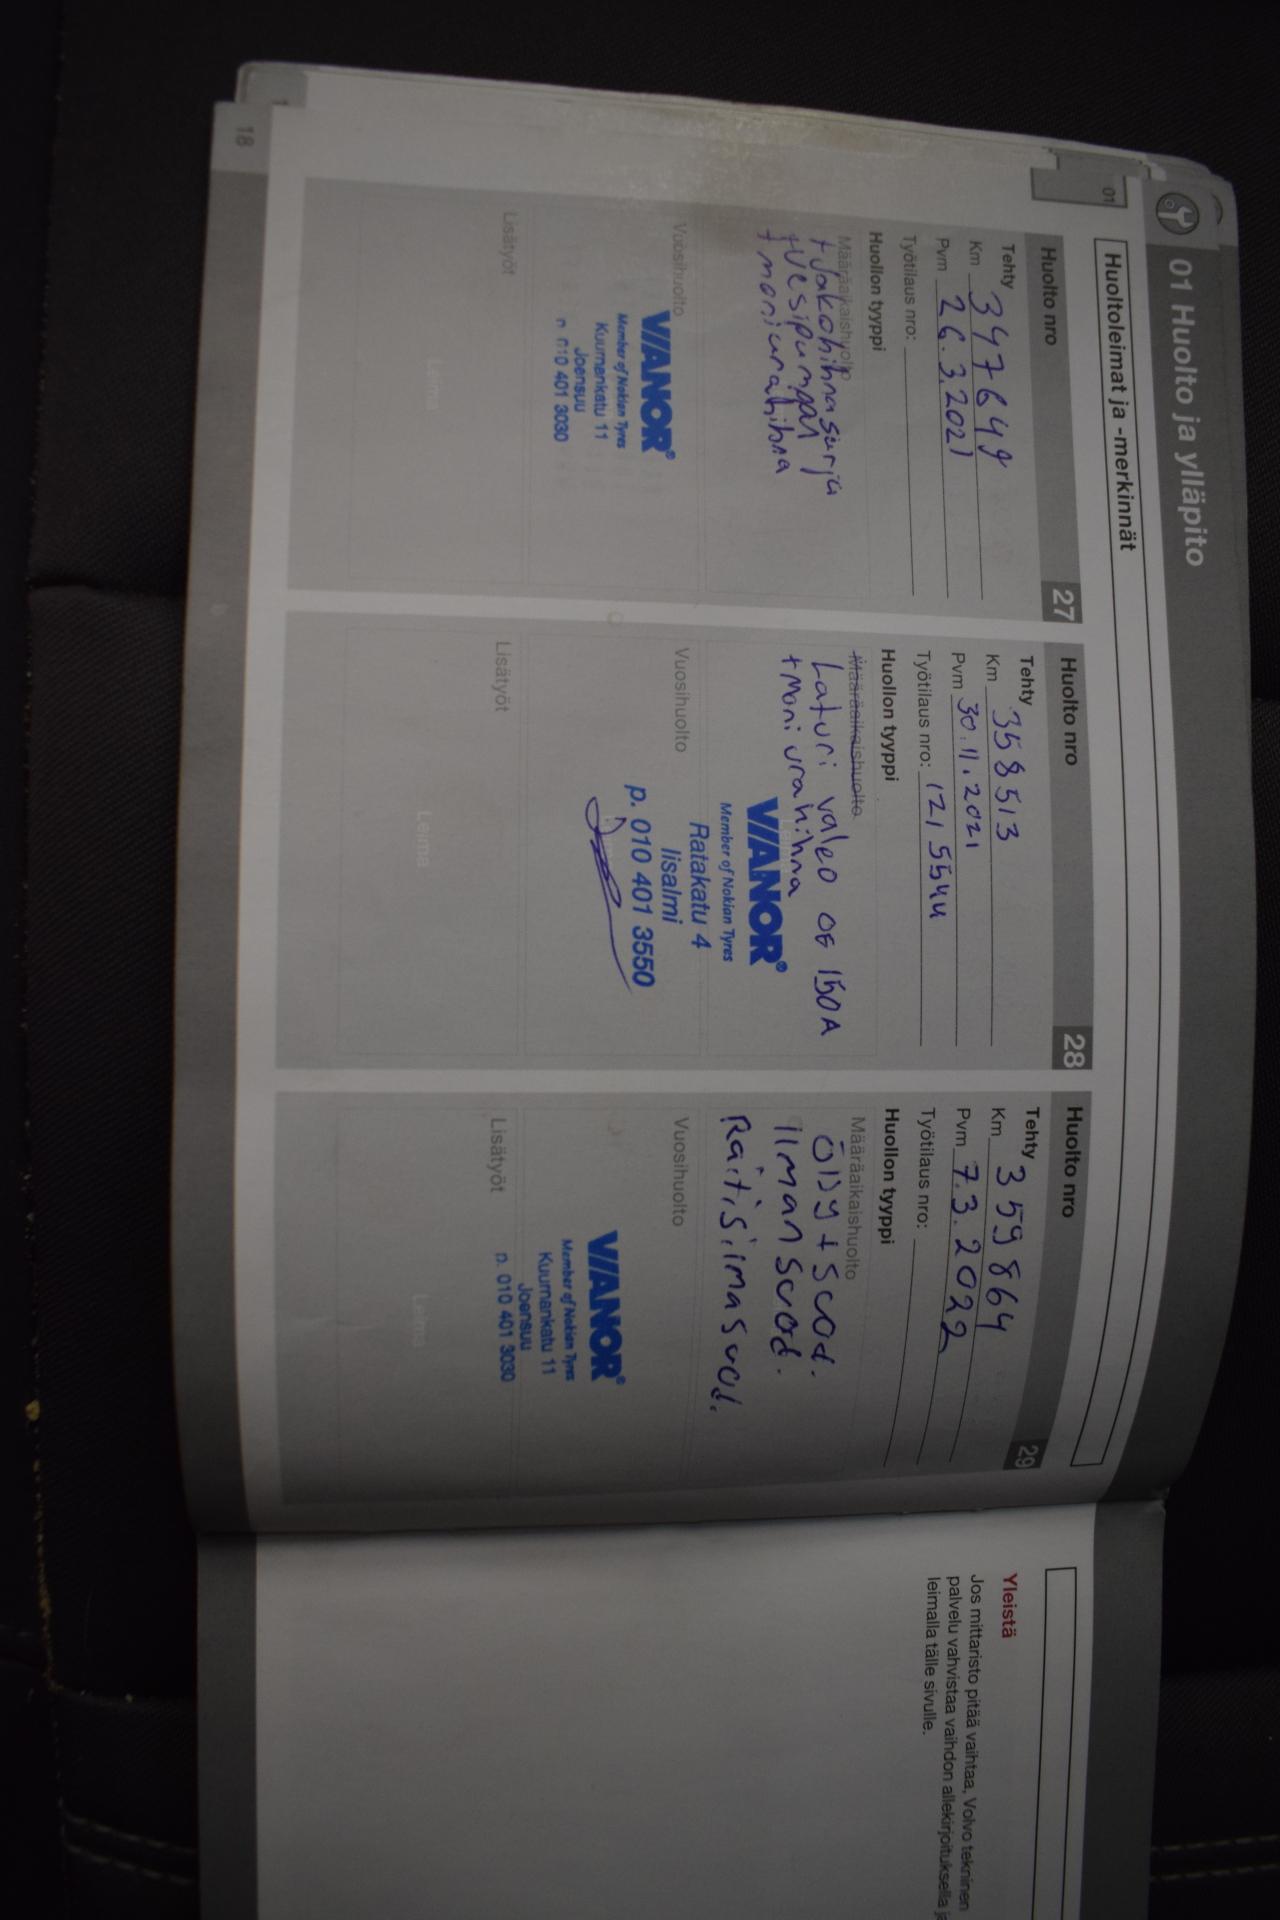 01 Huolto ja ylläpito
Huoltoleimat ja -merkinnät
01
Huolto nro 27
Tehty
Km 347649
Pvm 26.3.2021
Työtilaus nro:
Huollon tyyppi
Määräaikaishuolto
+ Jakohihnasarja
+ Vesipumppu
+ moniurahihna
Vuosihuolto
VIANOR®
Member of Nokian Tyres
Kuurnankatu 11
Joensuu
010 401 3030
Lisätyöt
Leima
Huolto nro 28
Tehty
Km 358513
Pvm 30.11.2021
Työtilaus nro: 1215544
Huollon tyyppi
Määräaikaishuolto
Laturi valeo OE 150A
+ Moniurahihna
VIANOR®
Member of Nokian Tyres
Vuosihuolto
Ratakatu 4
Iisalmi
p. 010 401 3550
Lisätyöt
Leima
Huolto nro 29
Tehty
Km 359864
Pvm 7.3.2022
Työtilaus nro:
Huollon tyyppi
Määräaikaishuolto
Öljy + suod.
ilmansuod.
Raitisilmasuod.
Vuosihuolto
VIANOR®
Member of Nokian Tyres
Kuurnankatu 11
Joensuu
p. 010 401 3030
Lisätyöt
Leima
18
Yleistä
Jos mittaristo pitää vaihtaa, Volvo tekninen
palvelu vahvistaa vaihdon allekirjoituksella ja
leimalla tälle sivulle.